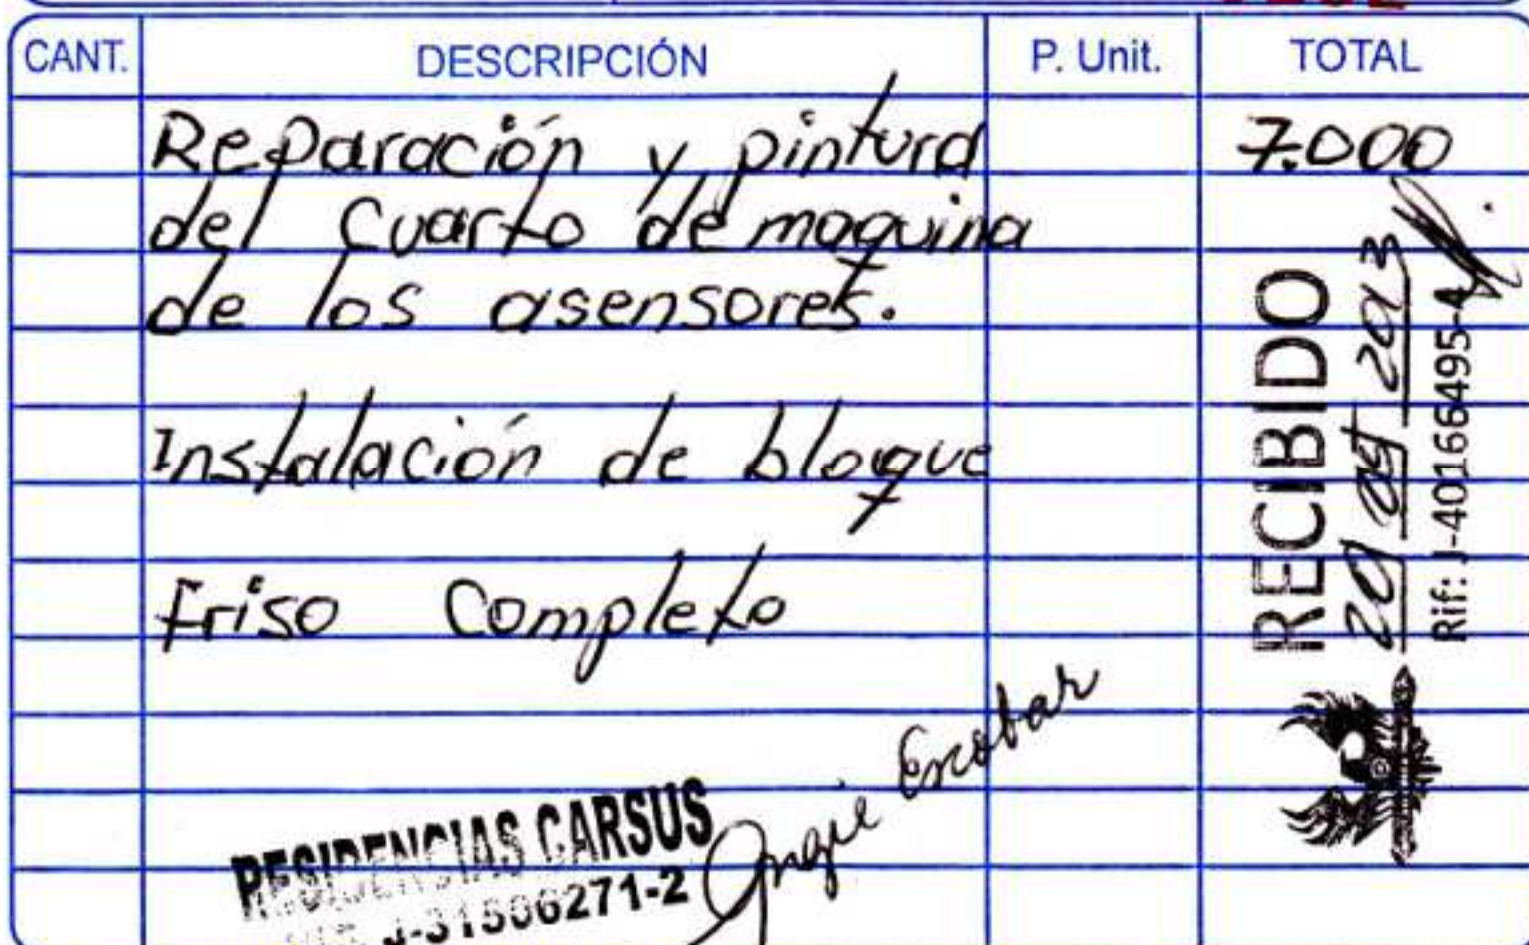 CANT. DESCRIPCIÓN P. Unit. TOTAL
Reparación y pintura 7.000
del cuarto de maquina
de los asensores.
Instalación de bloque
Friso completo
RECIBIDO
20 09 2013
Rif: J-40166495-4
Angie Escobar
RESIDENCIAS CARSUS
J-31506271-2